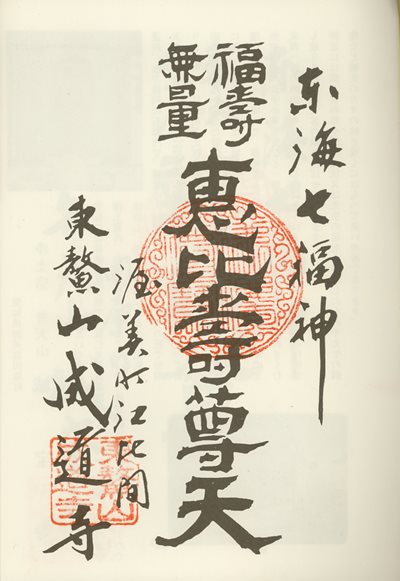 東海七福神
福壽
無量
恵比壽尊天
渥美町江比間
東鰲山成道寺